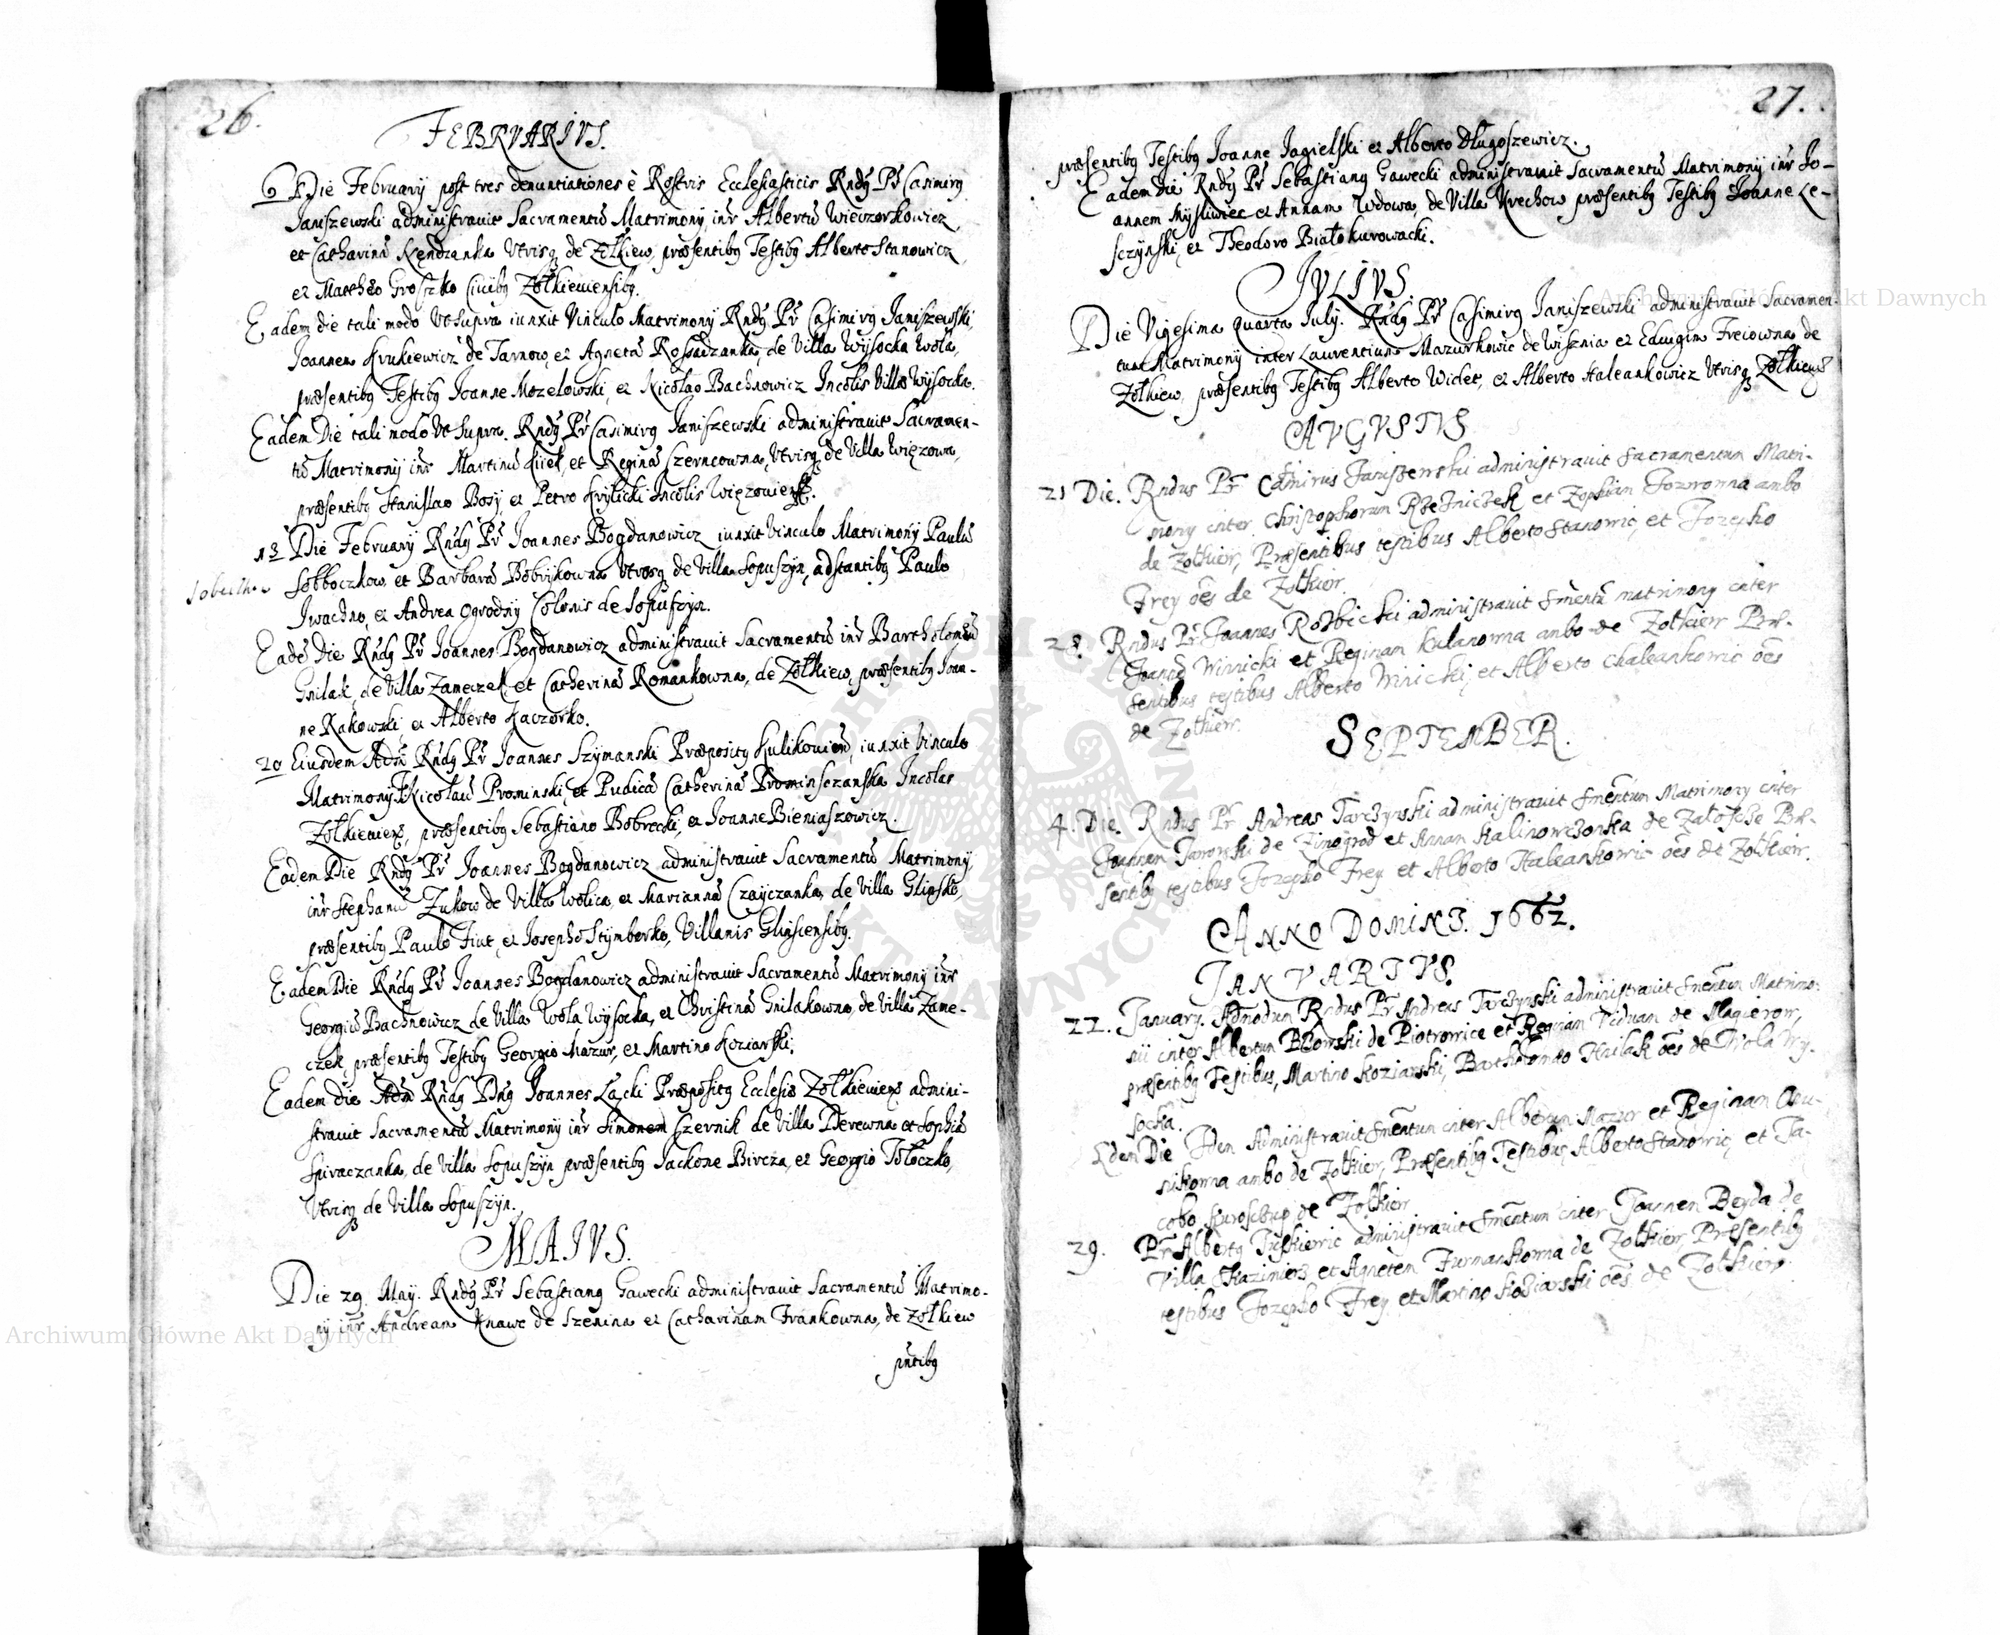 26.
FEBRVARIVS.
6 Die February post tres denuntiationes è Rostris Ecclesiasticis Rndy Pr Casimirg
Janiszewski administrauit Sacramentũ Matrimony inr Albertũ Wieczorkowicz
et Catharinã Kendzanka Vtrisq de Zołkiew, præsentibg Testibg Alberto Stanowicz
et Matthæo Groszko Ciuibg Zołkieuiensibg.
Eadem die tali modo Vt Supra iunxit Vinculo Matrimony Rndg Pr Casimirg Janiszewski,
Joannem Krukiewicz de Tarnow, et Agnetã Rossadzanka, de Villa Wysocka Wola,
præsentibg Testibg Joanne Mozelowski, et Nicolao Bachnowicz Incolis Villæ Wysocka.
Eadem Die tali modo Vt Supra. Rndg Pr Casimirg Janiszewski administrauit Sacramen-
tũ Matrimony inr Martinũ Kiieł, et Reginã Czerncowna, Vtrisq de Villa Więzowa,
præsentibg Stanislao Bosy, et Petro Krylicki Incolis Więzouiens.
13 Die February Rndg Pr Joannes Bogdanowicz iunxit Vinculo Matrimony Paulũ
Sobboczkow et Barbarã Bobrykowna Vtrosq de Villa Sopuszyn, adstantibg Paulo
Iwachno, et Andrea Ogrodny Colonis de Sopuszyn.
Eadẽ Die Rndg Pr Joannes Bogdanowicz administrauit Sacramentũ inr Bartholomæũ
Gnilak, de Villa Zameczek et Catherinã Romankowna, de Zołkiew, præsentibg Joan-
ne Rakowski et Alberto Kaczorko.
20 Eiusdem Adm Rndg Pr Joannes Szymanski Præpositg Kulikouien, iunxit Vinculo
Matrimony Nicolaũ Prominski, et Pudicã Catherinã Prominsczanska Incolas
Zołkieuiens, præsentibg Sebastiano Bobrecki, et Joanne Bieniaszowicz.
Eadem Die Rndg Pr Joannes Bogdanowicz administrauit Sacramentũ Matrimony
inr Stephanũ Zukow de Villa Wolica, et Mariannã Czayczanka, de Villa Glinsko,
præsentibg Paulo Fiut, et Josepho Stymborko, Villanis Glinscensibg.
Eadem Die Rndg Pr Joannes Bogdanowicz administrauit Sacramentũ Matrimony inr
Georgiũ Bachnowicz de Villa Wola Wysocka, et Christinã Gnilakowna, de Villa Zame-
czek, præsentibg Testibg Georgio Mazur, et Martino Koziarski.
Eadem die Adm Rndg Dng Joannes Łącki Præpositg Ecclesiæ Zołkieuiens admini-
strauit Sacramentũ Matrimony inr Simonem Szernik de Villa Derewna et Sophiã
Spiraczanka, de Villa Sopuszyn præsentibg Jackone Bircza, et Georgio Tołoczko,
Vtrisq de Villa Sopuszyn.
MAIVS.
Die 29 May. Rndg Pr Sebastiang Gawecki administrauit Sacramentũ Matrimo-
ny inr Andream Knawc de Szenina et Catharinam Frankowna, de Zołkiew
pntibg
27.
præsentibg Testibg Joanne Jagielski et Alberto Długoszewicz.
Eadem Die Rndg Pr Sebastiang Gawecki administrauit Sacramentũ Matrimony inr Jo-
annem Mysliwiec et Annam Wdowa, de Villa Krechow præsentibg Testibg Joanne Le-
sczynski, et Theodoro Białokurowacki.
IVLIVS.
Die Vigesima Quarta July. Rndg Pr Casimirg Janiszewski administrauit Sacramen-
tum Matrimony inter Laurentium Mazurkowic de Wisznia et Eduigim Freiowna de
Zołkiew, præsentibg Testibg Alberto Widet, et Alberto Haleankowicz Vtrisq Zołkieuiẽs
AVGVSTVS
21 Die. Rndus Pr Casimirus Janiszewski administrauit Sacramentum Matri-
mony inter Christophorum Rzezniczek et Zophiam Jozwowna ambo
de Zolkiew, Præsentibus testibus Alberto Stanowic, et Jozepho
Frey oẽs de Zolkiew.
28. Rndus Pr Joannes Rozbicki administrauit Smentũ matrimony inter
Joanẽ Winnicki et Reginam Kulanowna ambo de Zolkiew Præ-
sentibus testibus Alberto Winicki, et Alberto Chaleankowic oẽs
de Zolkiew.
SEPTEMBER.
4. Die. Rndus Pr Andreas Tarczynski administrauit Smentum Matrimony inter
Joannem Jaworski de Zinogrod et Annam Kalinowczonka de Załosce Præ-
sentibg testibus Jozepho Frey et Alberto Haleankowic oẽs de Zolkiew.
ANNO DOMINI. 1662.
JANVARIVS.
22. January. Admodum Rndus Pr Andreas Tarczynski administrauit Smentum Matrimo-
nii inter Albertum Błowski de Piotrowice et Reginam Viduam de Magierow,
præsentibg Testibus, Martino Koziarski, Bartholomæo Hnilak oẽs de Wola Wy-
socka.
Edem Die Iden Administrauit Smentum inter Albertum Mazur et Reginam
ambo de Zolkiew, Præsentibg Testibus, Alberto Stanowic, et Ja-
cobo de Zolkiew
29. Pr Albertg administrauit Smentum inter Joannem Beyda de
Villa Skazimierz et Agnetem Furmankowna de Zolkiew Præsentibg
testibus Jozepho Frey et Martino Koziarski oẽs de Zolkiew.
Archiwum Główne Akt Dawnych
Archiwum Główne Akt Dawnych